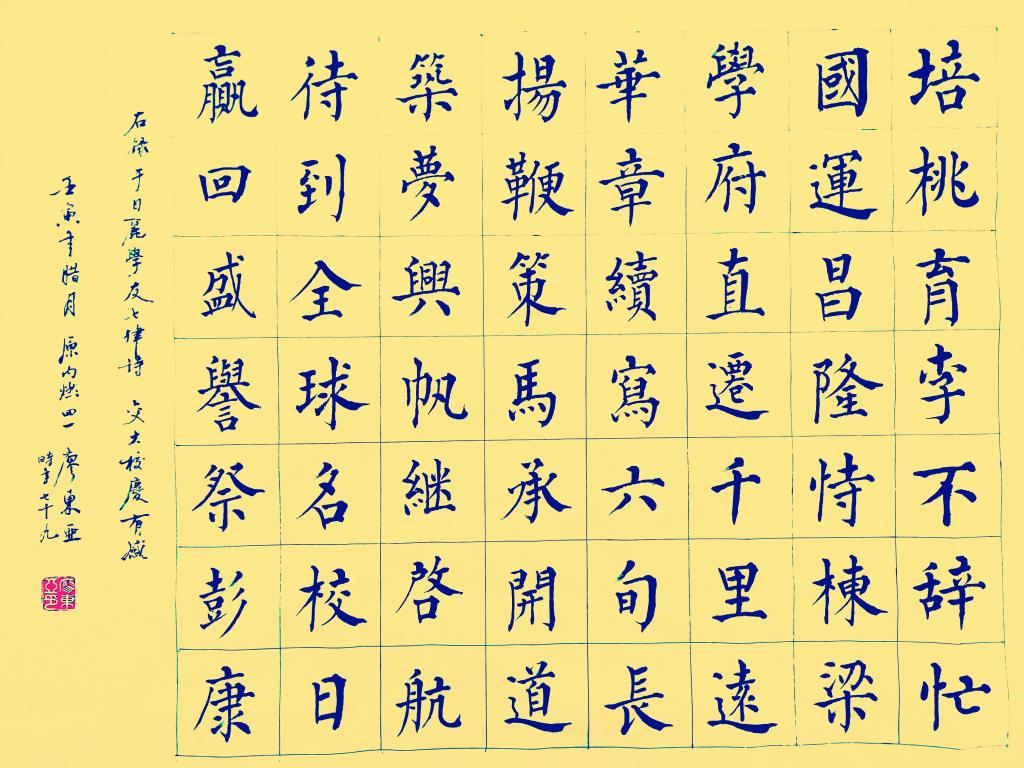 培桃育李不辞忙
國運昌隆恃棟梁
學府直遷千里遠
華章續寫六旬長
揚鞭策馬承開道
築夢興帆継啓航
待到全球名校日
贏回盛譽祭彭康
石錄于日麗學友七律詩 交大校慶有感
壬寅年腊月 原内燃四一 廖東亜
時年七十九